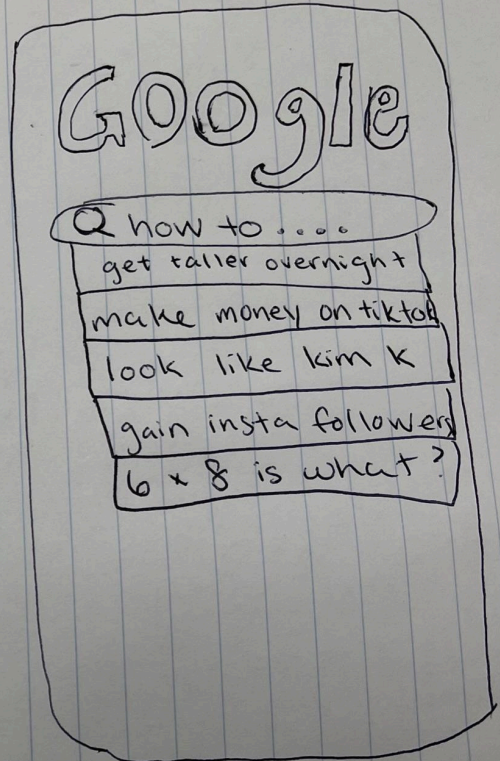 Google
Q how to....
get taller overnight
make money on tiktok
look like kim k
gain insta followers
6 x 8 is what?